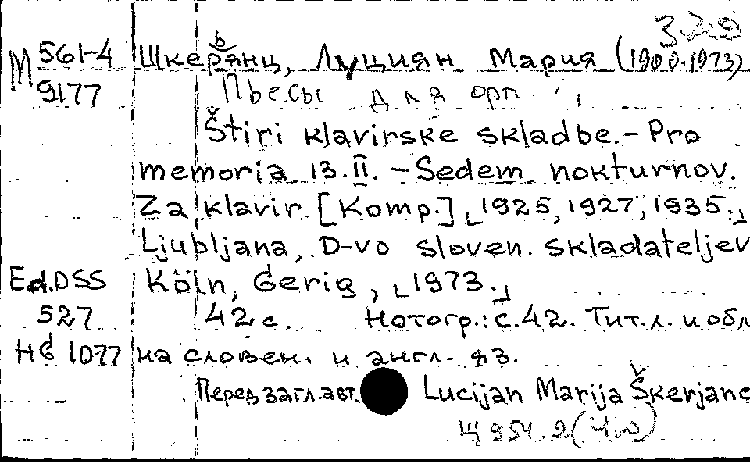 329
М 561-4
9177
Шкерьянц, Луциян Мария (1900-1973)
Пьесы для
Štiri klavirske skladbe. - Pro
memoria 13.II. - Sedem nokturnov.
Za klavir [Komp.] ⌞1925, 1927, 1935.⌟
Ljubljana, D-vo sloven. skladateljev
Ed.DSS Köln, Gerig, ⌞1973.⌟
527 42 с. Нотогр.: с.42. Тит.л. и обл.
HG 1077 на словен. и англ. яз.
Перед загл. авт. Lucijan Marija Škerjanc